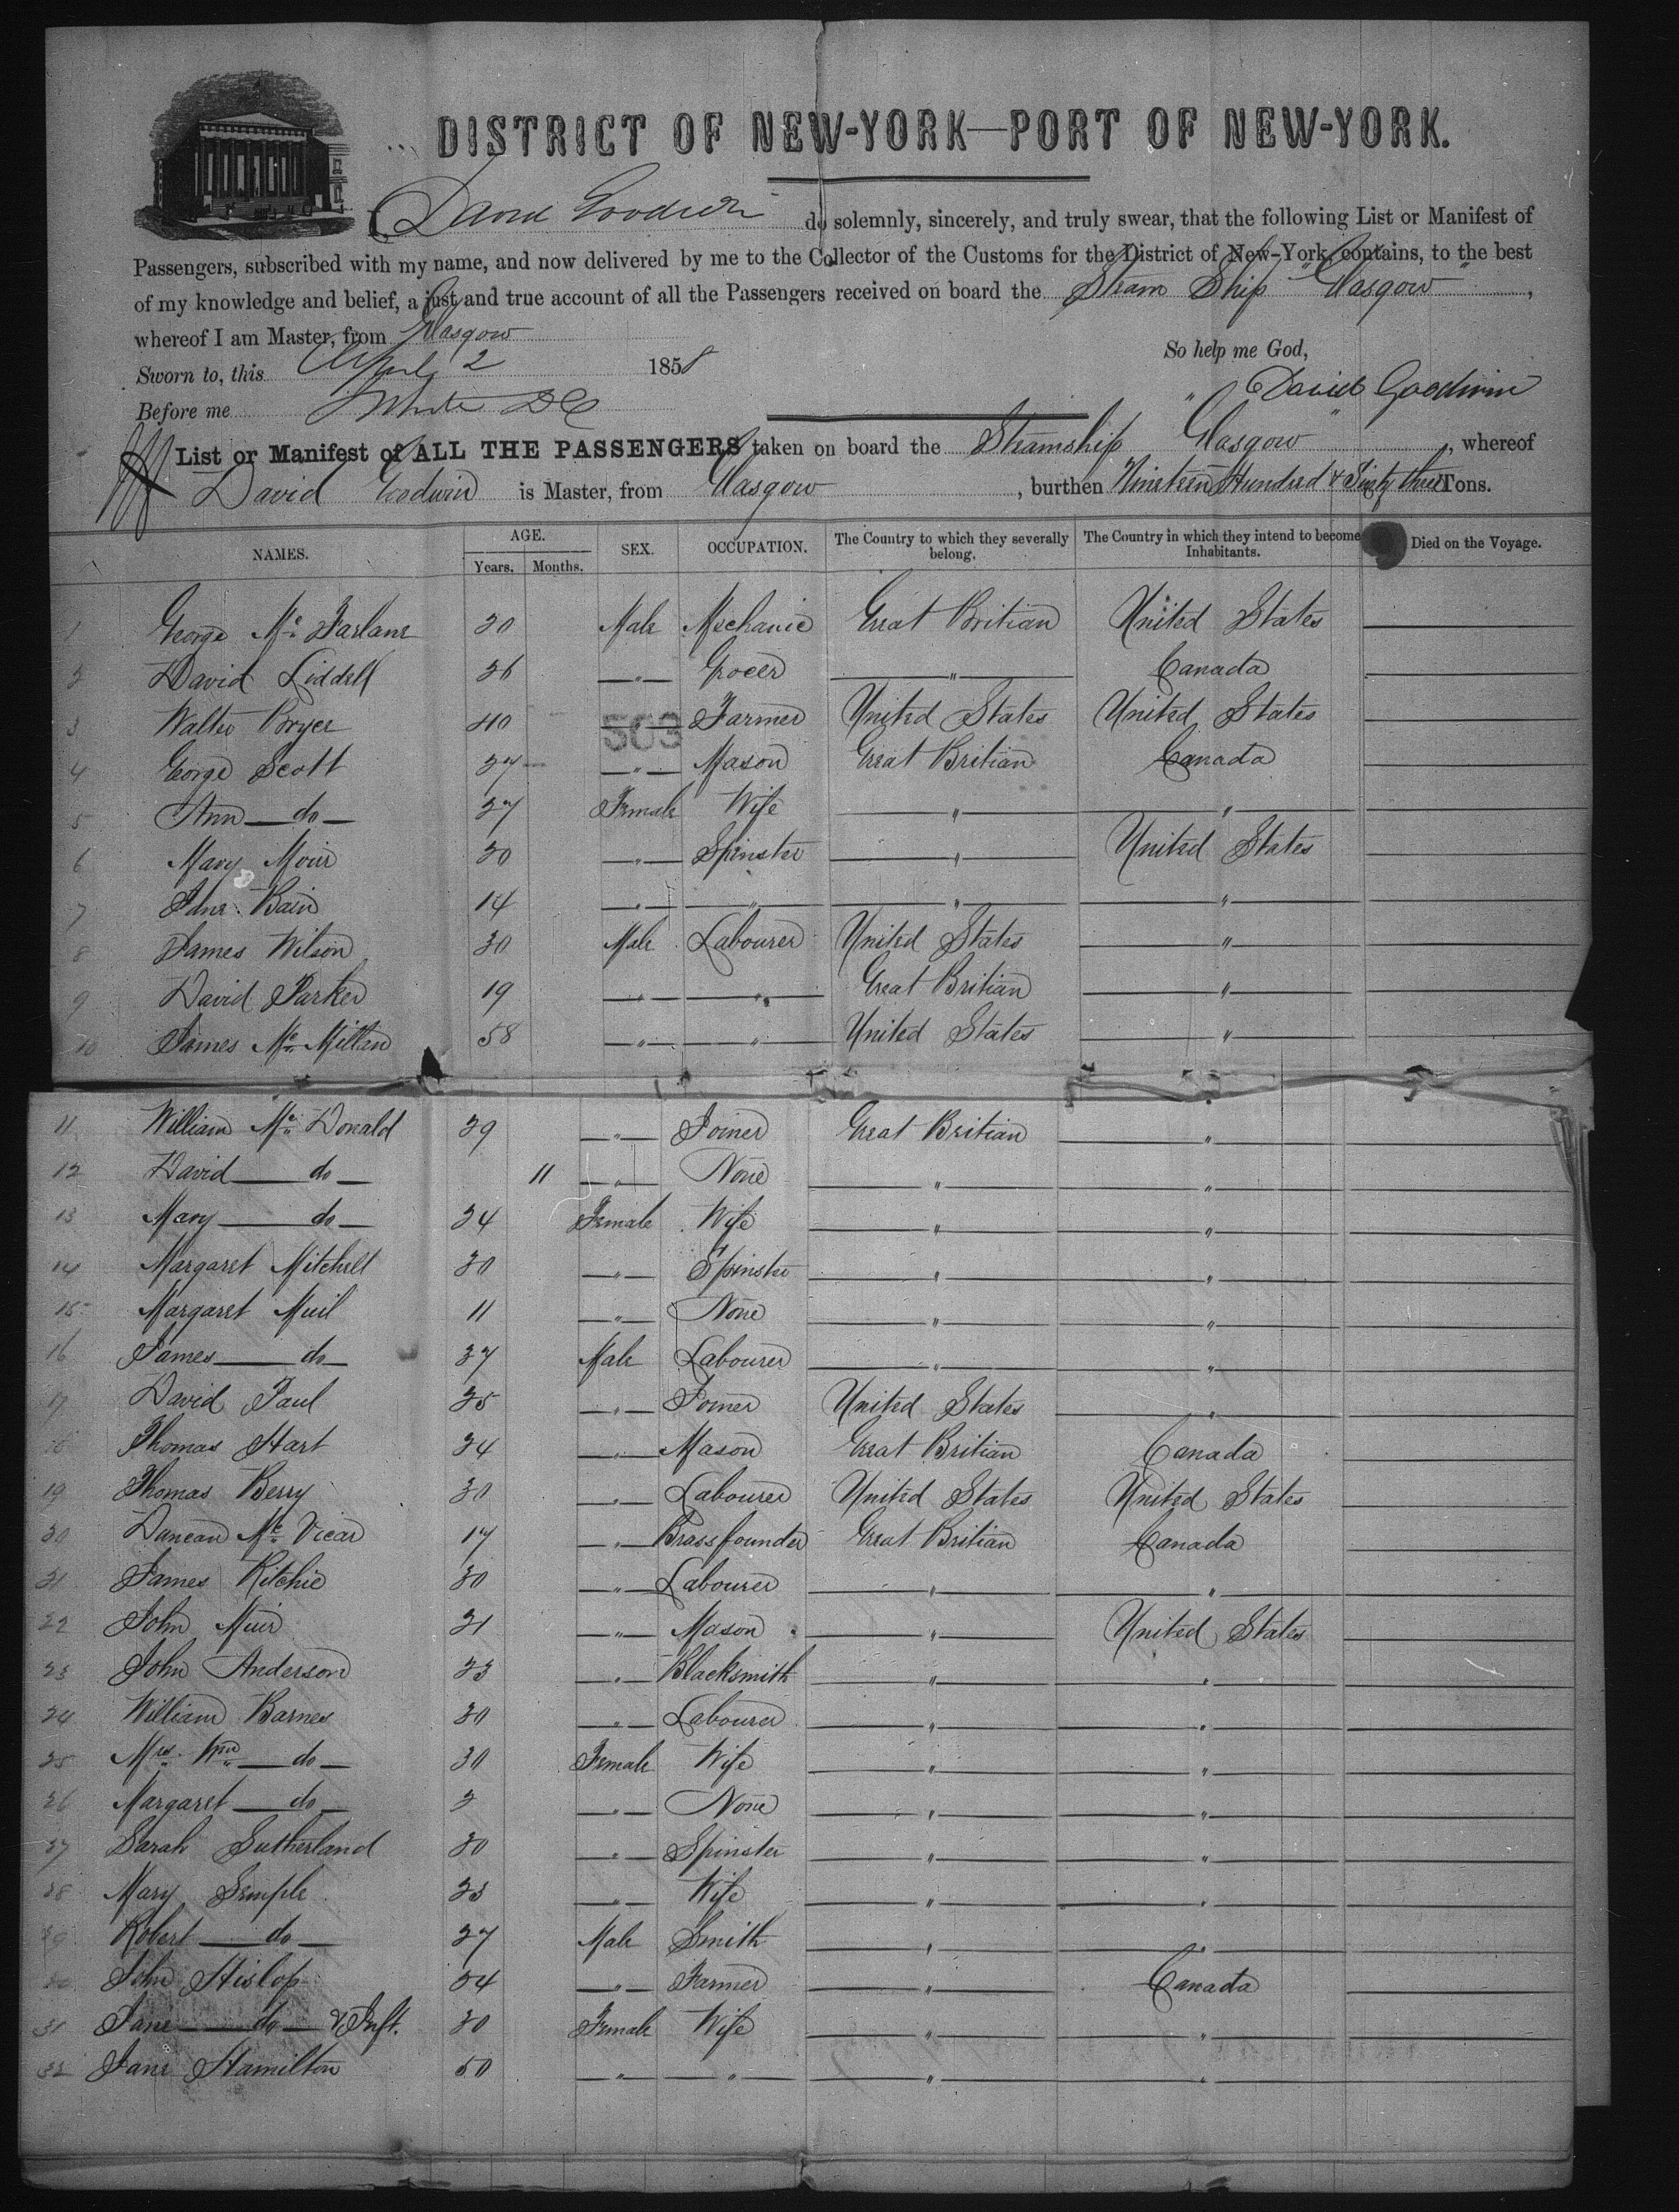 DISTRICT OF NEW-YORK—PORT OF NEW-YORK.
I, David Goodwin do solemnly, sincerely, and truly swear, that the following List or Manifest of
Passengers, subscribed with my name, and now delivered by me to the Collector of the Customs for the District of New-York, contains, to the best
of my knowledge and belief, a just and true account of all the Passengers received on board the Steam Ship "Glasgow",
whereof I am Master, from Glasgow
So help me God,
Sworn to, this April 2 1858
David Goodwin
Before me White DC
List or Manifest of ALL THE PASSENGERS taken on board the Steamship "Glasgow", whereof
David Goodwin is Master, from Glasgow, burthen Nineteen Hundred & Sixty three Tons.
NAMES. AGE. Years. Months. SEX. OCCUPATION. The Country to which they severally belong. The Country in which they intend to become Inhabitants. Died on the Voyage.
1 George Mc Farlane 20 Male Mechanic Great Britian United States
2 David Liddell 26 " Grocer " Canada
3 Walter Pryer 40 " Farmer United States United States
503
4 George Scott 27 " Mason Great Britian Canada
5 Ann do 27 Female Wife " "
6 Mary Moir 20 " Spinster " United States
7 Jane Bain 14 " " " "
8 James Wilson 30 Male Labourer United States "
9 David Parker 19 " " Great Britian "
10 James Mc Millan 58 " " United States "
11 William Mc Donald 29 " Joiner Great Britian "
12 David do 11 " None " "
13 Mary do 24 Female Wife " "
14 Margaret Mitchell 30 " Spinster " "
15 Margaret Muil 11 " None " "
16 James do 37 Male Labourer " "
17 David Paul 25 " Joiner United States "
18 Thomas Hart 24 " Mason Great Britian Canada
19 Thomas Berry 30 " Labourer United States United States
20 Duncan Mc Vicar 17 " Brassfounder Great Britian Canada
21 James Ritchie 30 " Labourer " "
22 John Muir 21 " Mason " United States
23 John Anderson 23 " Blacksmith " "
24 William Barnes 30 " Labourer " "
25 Mrs. Wm do 30 Female Wife " "
26 Margaret do 2 " None " "
27 Sarah Sutherland 20 " Spinster " "
28 Mary Semple 23 " Wife " "
29 Robert do 27 Male Smith " "
30 John Hislop 34 " Farmer " Canada
31 Jane do & Inft. 30 Female Wife " "
32 Jane Hamilton 50 " " " "